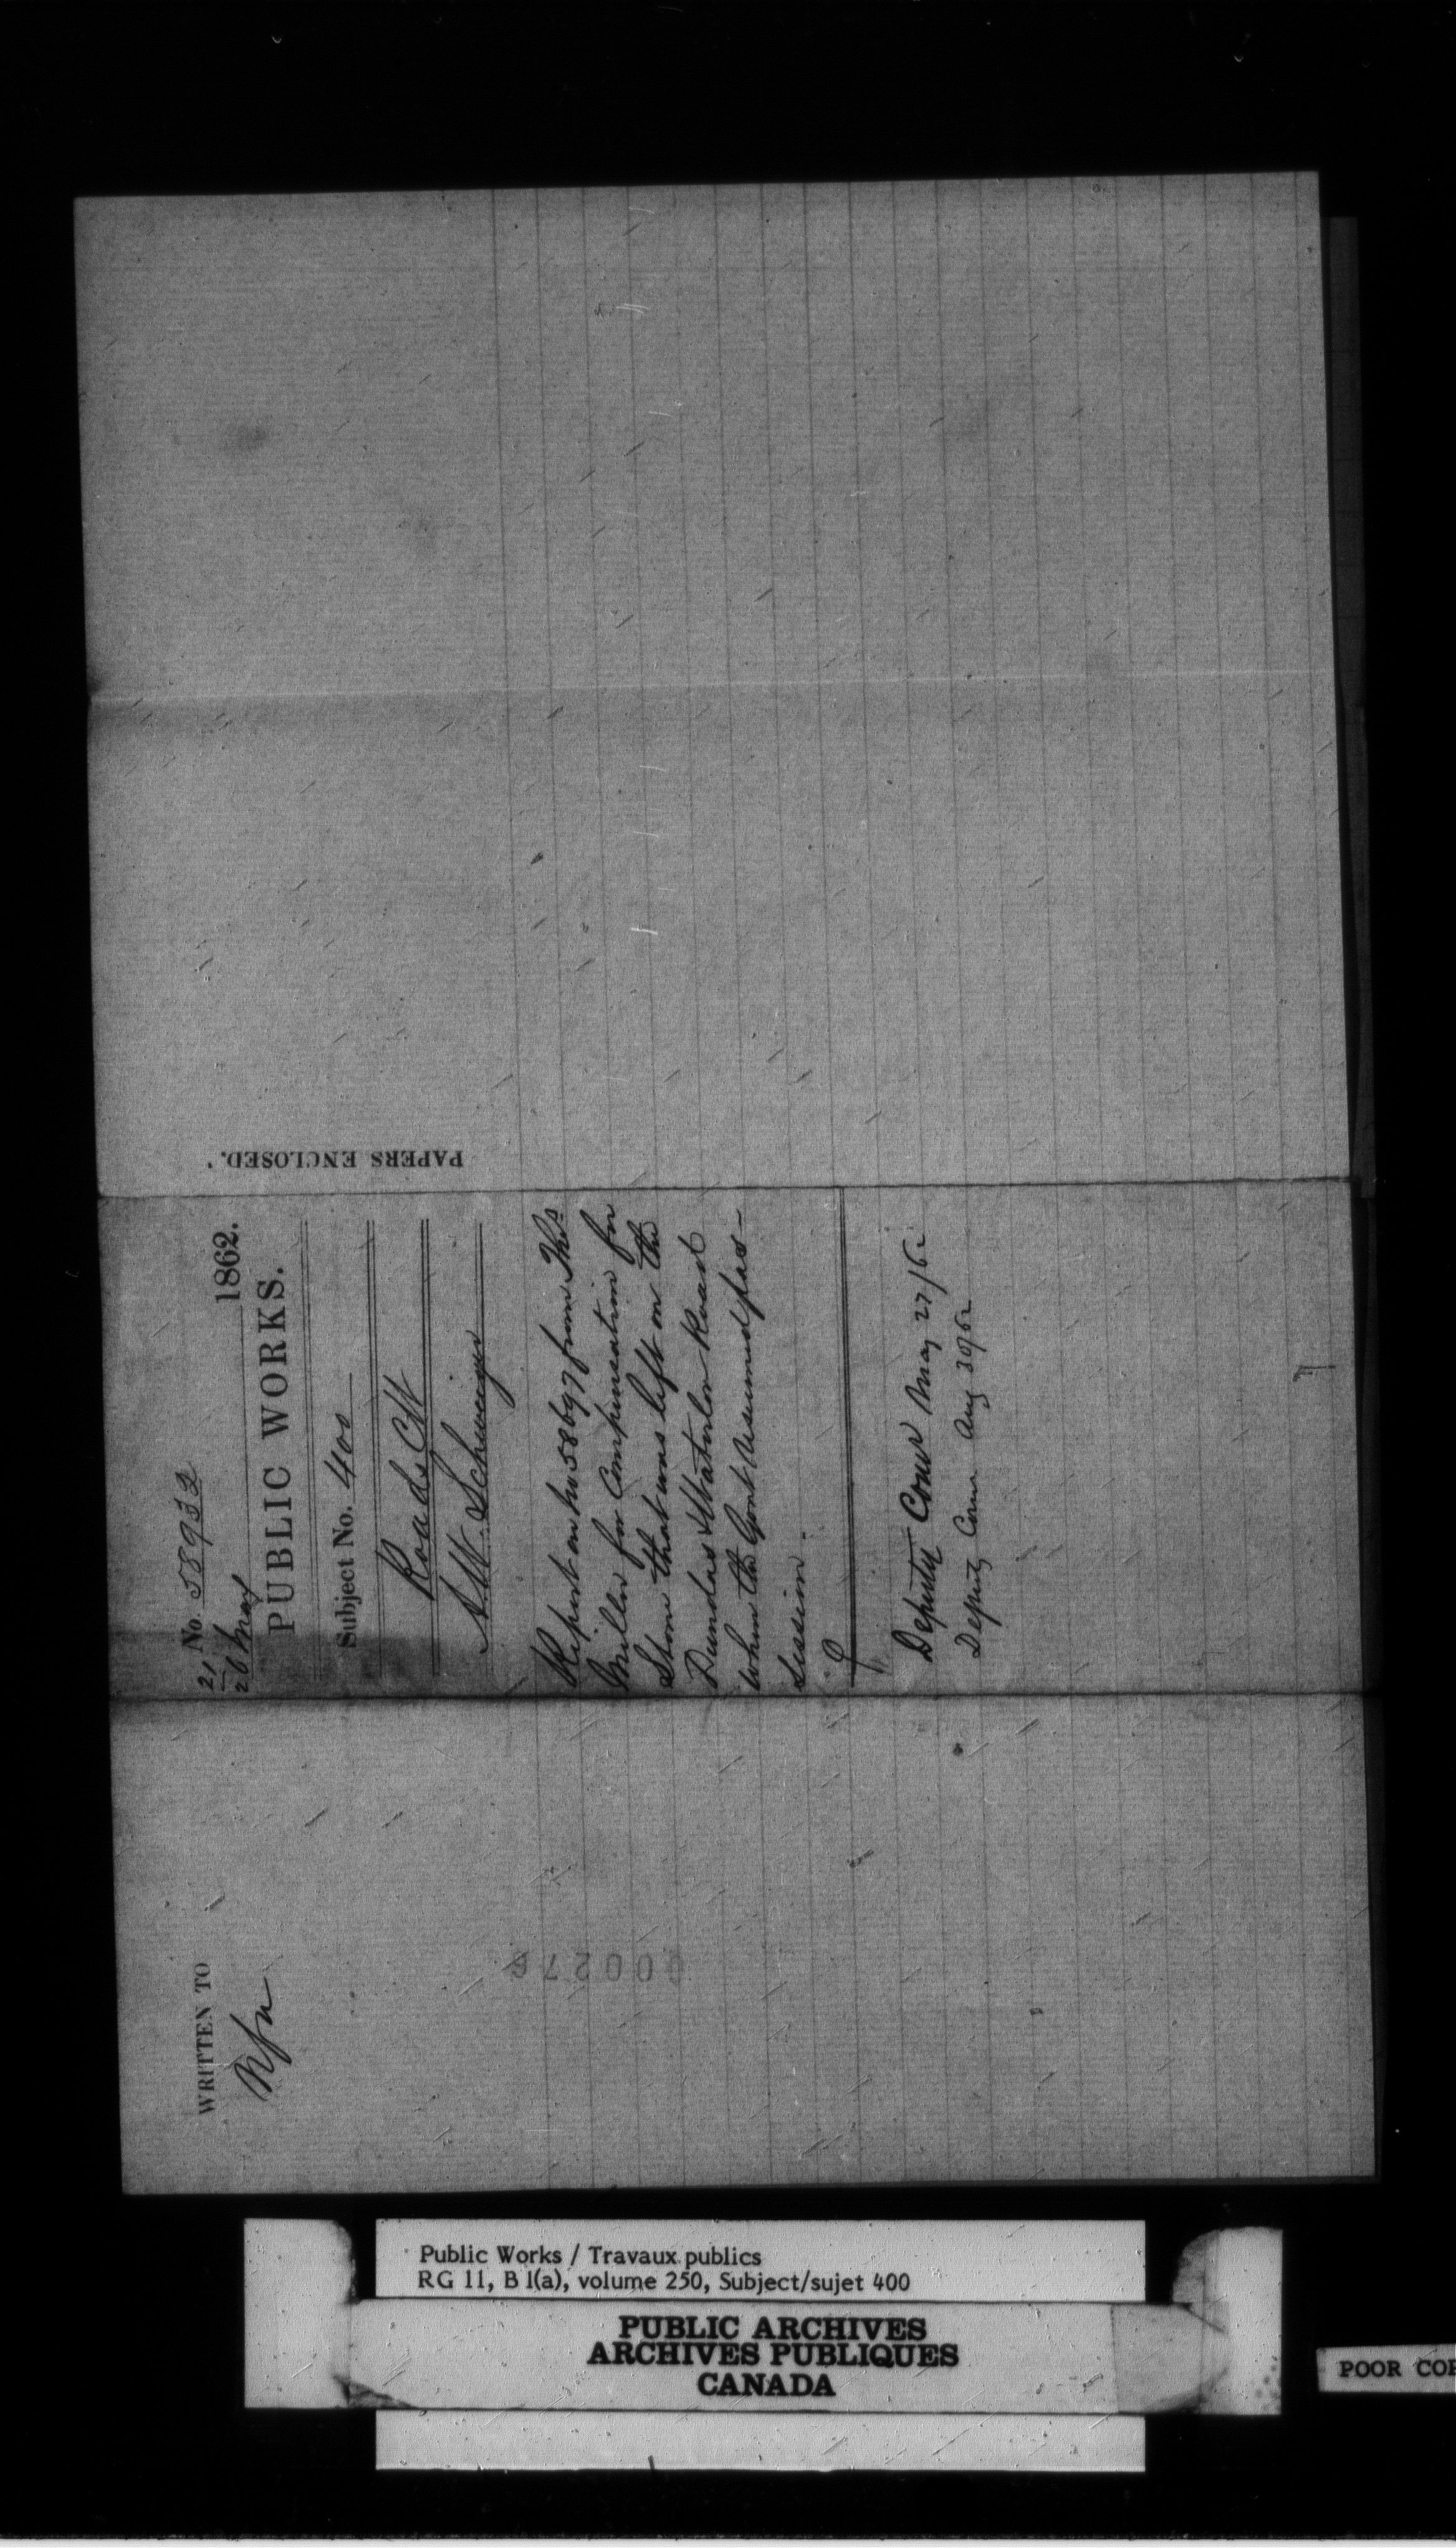 WRITTEN TO
Nfn
No. 58933
21
26 May 1862.
PUBLIC WORKS.
Subject No. 400
Roads CW
A.W. Schwieger
Report on No 58697 from Thos
Miller for Compensation for
Stone that was left on the
Dundas & Waterloo Road
when the Govt assumed pos-
session.
Deputy Comr May 27/62
Deputy Comr Aug 30/62
PAPERS ENCLOSED.
Public Works / Travaux publics
RG 11, B 1(a), volume 250, Subject/sujet 400
PUBLIC ARCHIVES
ARCHIVES PUBLIQUES
CANADA
POOR COP